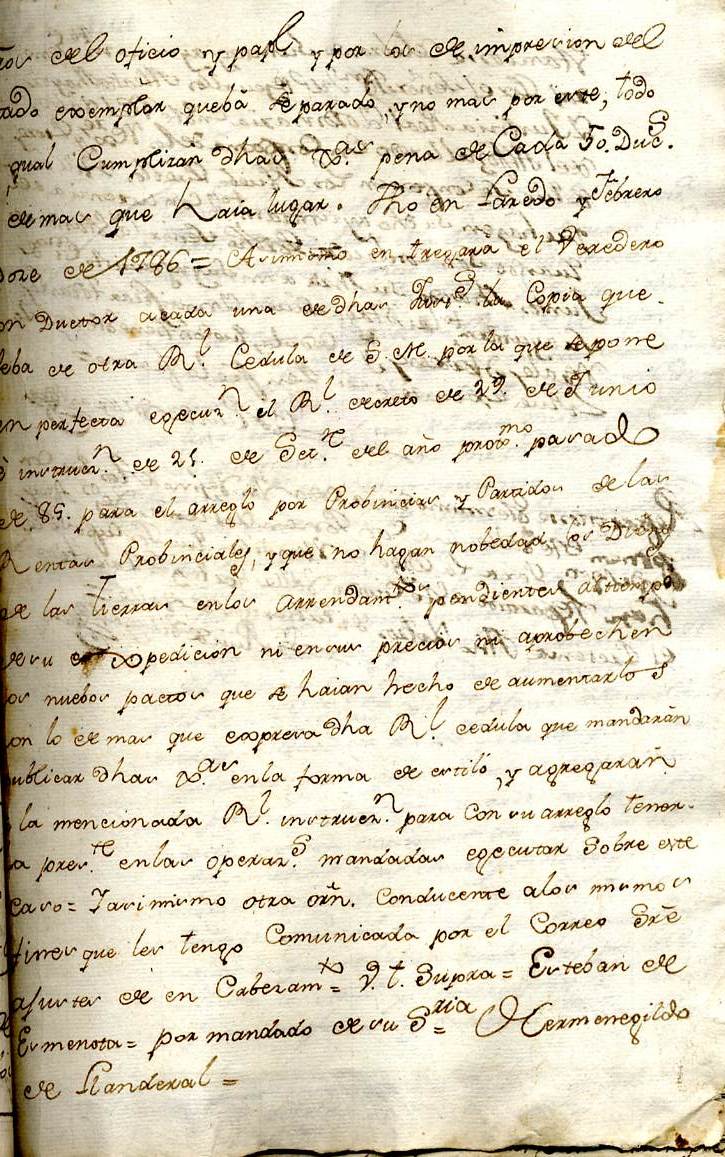 del oficio y papl y por los de impresion del
exemplar que bá separado, y no mas por este, todo
qual Cumpliran dhas pena de Cada 50. Ducs.
demas que haia lugar. Fho en Laredo y Febrero
doze de 1786 = Asimismo entregara el Veredero
on Ductor acada una de dhas Jurs. la Copia que
leba de otra Rl. Cedula de S. M. por la que se pone
en perfecta egecuzn. el Rl. decreto de 29. de Junio
é instruczn. de 21. de Setre. del año proxmo. pasado
de 85. para el arreglo por Probincias y Partidos de las
Rentas Probinciales, y que no hagan nobedad los Dueños
de las tierras enlos Arrendamtos. pendientes al tiempo
de su expedicion ni ensus precios ni aprobechen
os nuebos pactos que se haian hecho de aumentarlos
on lo demas que expresa dha Rl. cedula que mandarán
ublicar dhas enla forma de estiló, y agregarán
la mencionada Rl. instruczn. para con su arreglo tener-
la preste. enlas operazs. mandadas egecutar sobre este
caso = Y asimismo otra orñ. conducente alos mismos
fines que les tengo Comunicada por el Correo
de en Cabezamto. = Ut. Supra = Esteban de
Esmenota = por mandado de su Sria = Hermenegildo
de Llanderal =